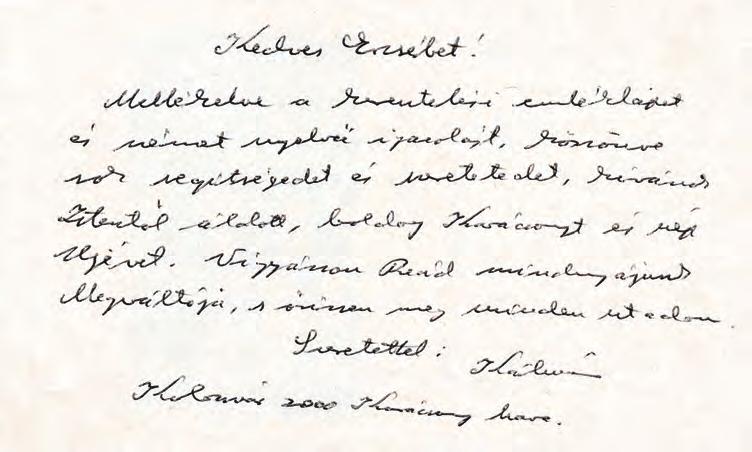 Kedves Erzsébet!
Mellékelve a szentelési emléklapot
és német nyelvű igazolást, köszönve
sok segítségedet és szeretetedet, kívánok
Istentől áldott, boldog Karácsonyt és szép
Újévet. Vigyázzon Reád mindnyájunk
Megváltója, s őrizzen meg minden utadon.
Szeretettel: Kálmán
Kolozsvár 2000 Karácsony hava.